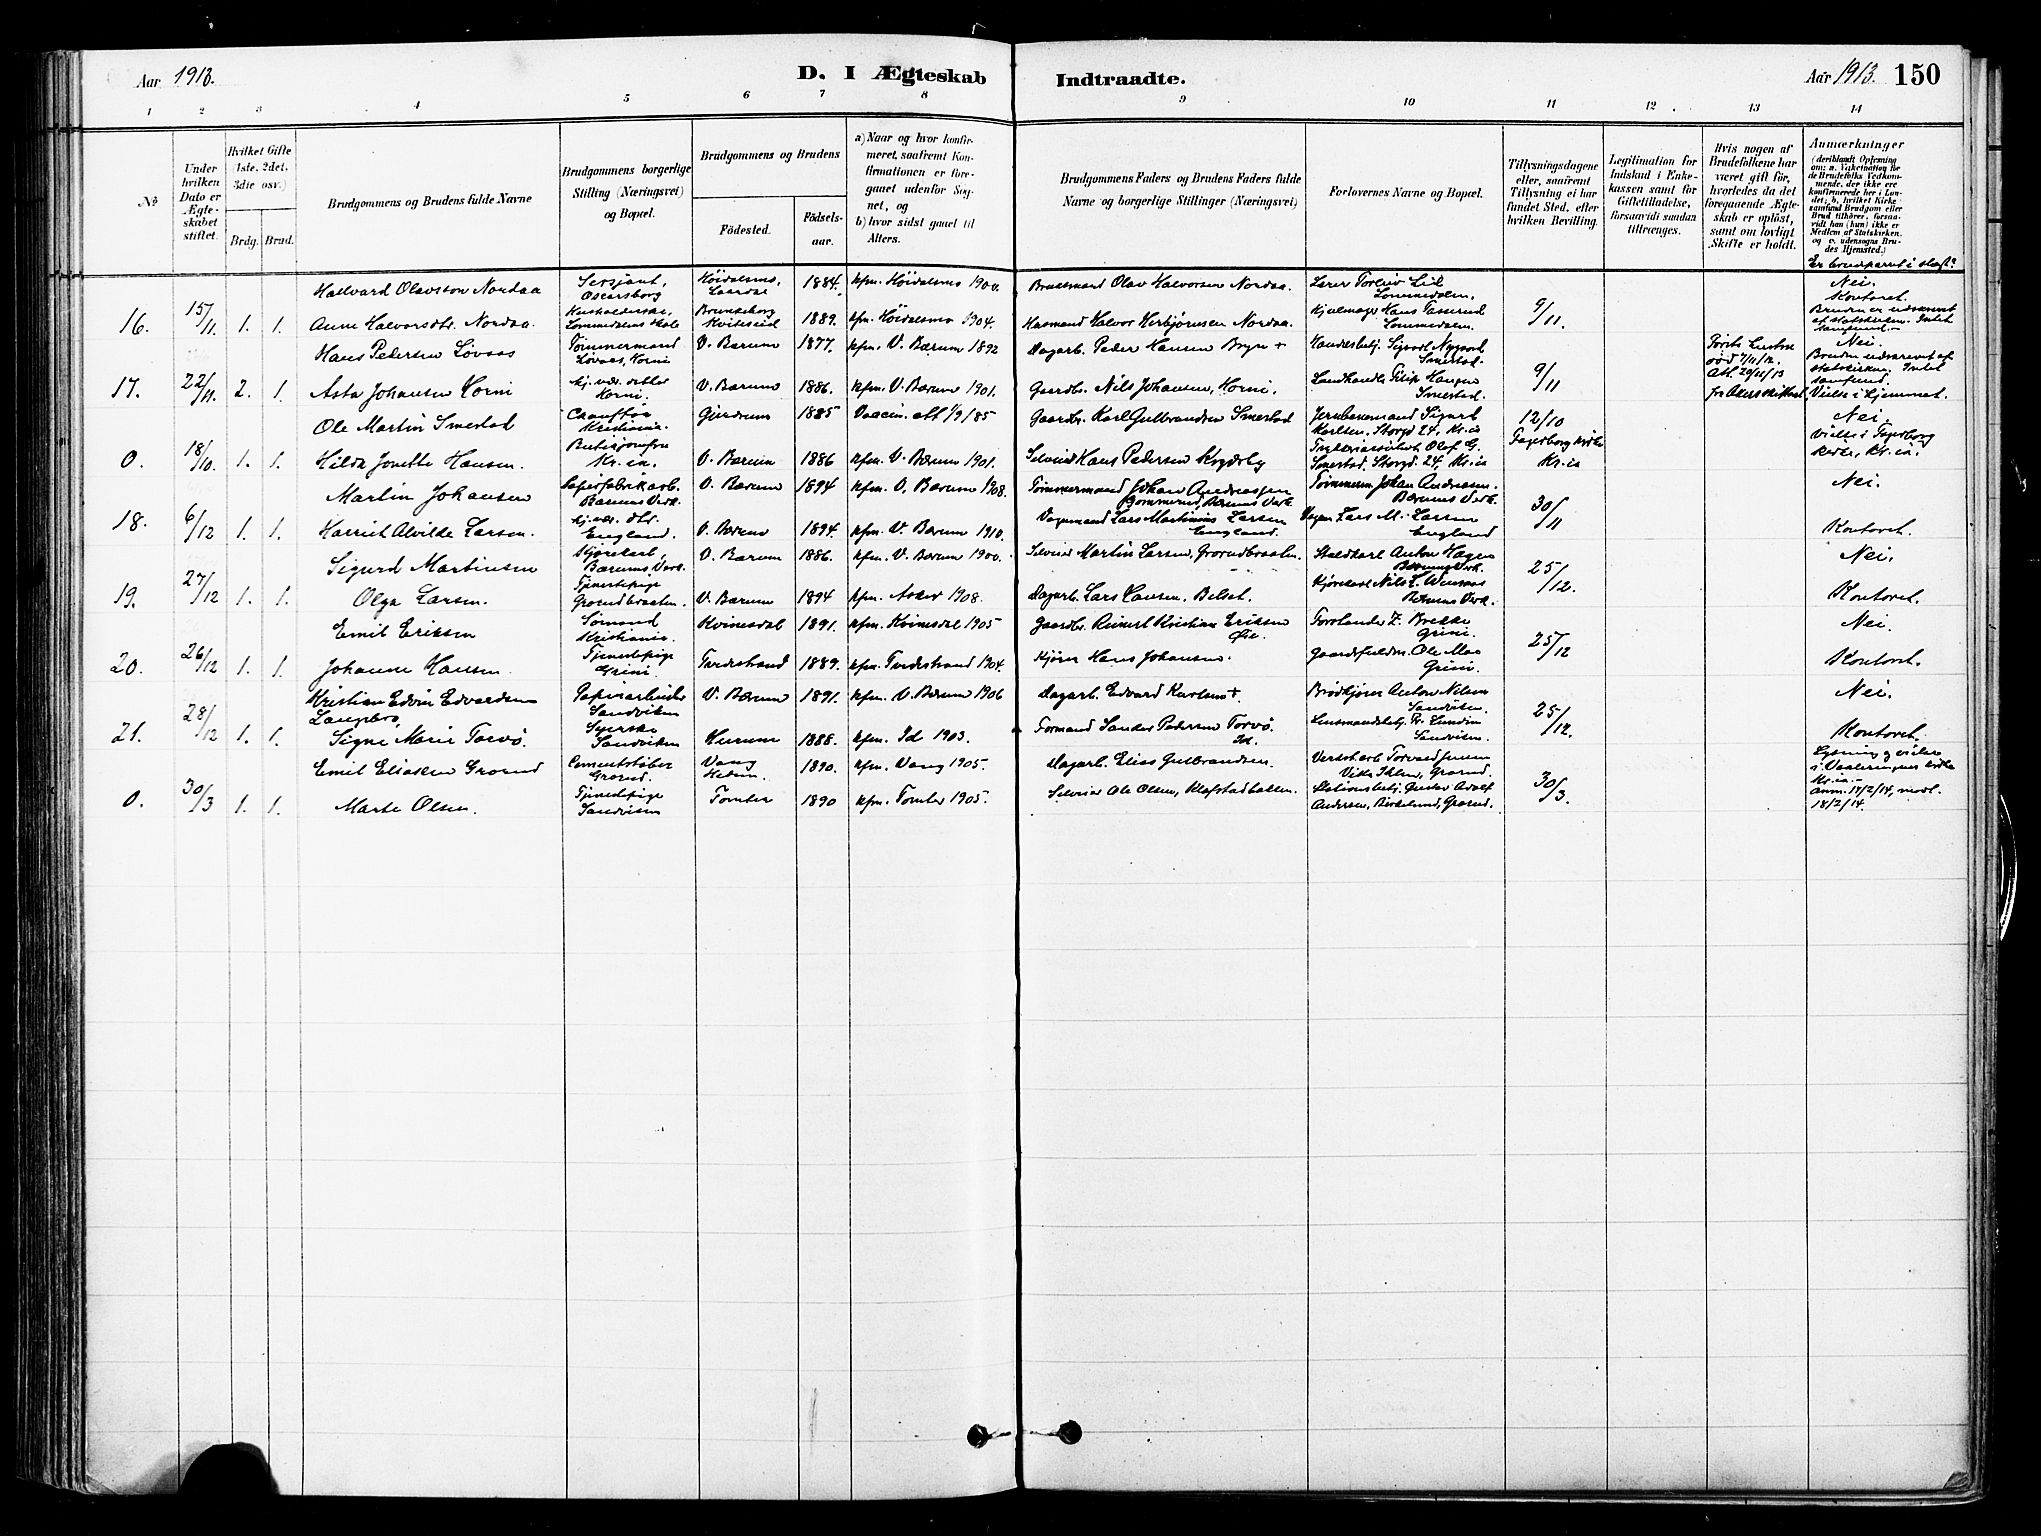 Aar 1913.
D. I Ægteskab Indtraadte.
Aar 1913. 150
1 2 3 4 5 6 7 8 9 10 11 12 13 14
No
Under hvilken Dato er Ægteskabet stiftet.
Hvilket Gifte (1ste, 2det, 3die osv.)
Brdg. Brud.
Brudgommens og Brudens fulde Navne
Brudgommens borgerlige Stilling (Næringsvei) og Bopæl.
Brudgommens og Brudens
Födested. Födsels-aar.
a) Naar og hvor konfirmeret, saafremt Konfirmationen er foregaaet udenfor Sognet, og
b) hvor sidst gaaet til Alters.
Brudgommens Faders og Brudens Faders fulde Navne og borgerlige Stillinger (Næringsvei)
Forlovernes Navne og Bopæl.
Tillysningsdagene eller, saafremt Tillysning ei har fundet Sted, efter hvilken Bevilling.
Legitimation for Indskud i Enkekassen samt for Giftetilladelse, forsaavidt saadan tiltrænges.
Hvis nogen af Brudefolkene har været gift før, hvorledes da det foregaaende Ægteskab er oplöst, samt om lovligt Skifte er holdt.
Anmærkninger
(deriblandt Oplysning om: a. Vakcination for de Brudefolks Vedkommende, der ikke ere konfirmerede her i Landet; b. hvilket Kirkesamfund Brudgom eller Brud tilhører, forsaavidt han (hun) ikke er Medlem af Statskirken, og c. udensogns Brudes Hjemsted.)
Er brudeparret i slægt?
16. 15/11. 1. 1.
Hallvard Olavsson Nordaa Sersjant, Oscarsborg Høidalsmo, Laardal 1884. kfm. Høidalsmo 1900. Bruksmand Olav Halvorsen Nordaa. Lærer Torleiv Lid Lommedalen. 9/11. Nei. Kontoret.
Anne Halvorsdtr. Nordaa. Husholderske, Lommedalens Skole Brunkeberg Kviteseid 1889. kfm. Høidalsmo 1904. Husmand Halvor Herbjørnsen Nordaa. Hjulmager Hans Lommedalen. Bruden er udskrevet af statskirken. Intet samfund.
17. 22/11. 2. 1.
Hans Pedersen Løvaas Tømmermand Løvaas, Horni V. Bærum 1877. kfm. V. Bærum 1892 Dagarb. Peder Hansen Bryn + Handelsbetj. Sigurd Nygaard Smestad. 9/11 Nei.
Asta Johansen Horni hj. vær. datter Horni. V. Bærum 1886. kfm. V. Bærum 1901. Gaardbr. Nils Johansen, Horni. Landhandler Filip Haugen Smestad. død 7/11/12. Att. 20/11/13 fra Akers skifteret Bruden udskrevet af statskirken. Intet samfund. Vielse i hjemmet.
0. 18/10. 1. 1.
Ole Martin Smestad Chauffør Kristiania. Gjerdrum 1885 Vaccin. att 1/9/85 Gaardbr. Karl Gulbrandsen Smestad Jernbanemand Sigurd Karlsen, Storgd 24, Kr.ia 12/10 Fagerborg kirke Kr.ia Nei.
Hilda Jonette Hansen. Butikjomfru Kr.ia. V. Bærum 1886 kfm. V. Bærum 1901. Selveier Hans Pedersen Olaf G. Smestad, Storgd. 24, Kr.ia Vielse i Fagerborg kirke, Kr.ia.
18. 6/12 1. 1.
Martin Johansen Papirfabrikarb. Bærums Verk. V. Bærum 1894 kfm. V. Bærum 1908. Tømmermand Johan Andreassen Bærums Verk Tømmerm. Johan Andreassen. Bærums Verk. 30/11 Nei.
Harriet Alvilde Larsen. hj. vær. dtr. England. V. Bærum 1894. kfm. V. Bærum 1910. Vognmand Lars Martinius Larsen England. Vogn Lars M. Larsen England Kontoret.
19. 27/12 1. 1.
Sigurd Martinsen Kjørekarl, Bærums Verk. V. Bærum 1886. kfm. V. Bærum 1900. Selveier Martin Larsen, Grorudbraaten. Staldkarl Anton Hagen Bærums Verk. 25/12. Nei.
Olga Larsen. Tjenestepige Grorudbraaten. V. Bærum 1894 kfm. Asker 1908. Dagarb. Lars Hansen, Belset. Kjørekarl Nils L. Wensaas Bærums Verk. Kontoret.
20. 26/12 1. 1.
Emil Eriksen Sømand Kristiania. Kvinesdal 1891. kfm. Kvinesdal 1905 Gaardbr. Reinert Kristian Eriksen Øie. Forvalter Z. Brekke Grini. 25/12 Nei.
Johanne Hansen. Tjenestepige Grini. Tvedestrand 1889. kfm. Tvedestrand 1904. Kjører Hans Johansen. Gaardsfuldm. Ole Moe Grini. Kontoret.
21. 28/12 1. 1.
Kristian Edvin Edvardsen Langebro, Papirarbeider Sandviken V. Bærum 1891. kfm. V. Bærum 1906 Dagarb. Edvard Karlsen + Brødkjører Anton Nilsen Sandviken. 25/12. Nei.
Signe Marie Torvø. Syerske Sandviken Hurum 1888. kfm. Id 1903. Formand Sander Pedersen Torvø. Id. Lensmandsbetj. R. Lundin Sandviken. Kontoret.
0. 30/3 1. 1.
Emil Eliassen Grorud Cementstøber Grorud. Vang Hedm. 1890. kfm. Vang 1905. Dagarb. Elias Gulbrandsen. Verkstarb. Torvald Jensen Grorud. 30/3. Lysning og vielse i Vaalerengens kirke Kr.ia.
Marte Olsen. Tjenestepige Sandviken Tomter 1890 kfm. Tomter 1905. Selveier Ole Olsen, Klofstadbakken. Stationsbetj. Gustav Adolf Andersen, Birkelund, Grorud. anm. 17/2/14, modt. 18/2/14.